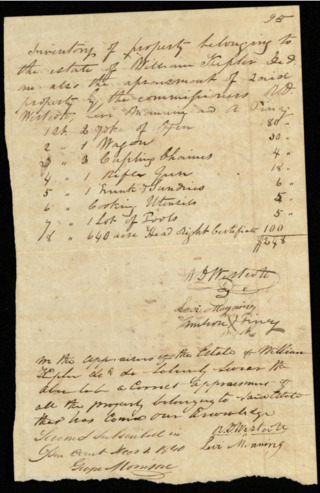 95
Inventory of property belonging to
the estate of William Kepler Decd
also the apraisment of said
property by the commissioners R.D.
Westcott Levi Manning and A Finey
1st 2 yoke of Oxen 80 "
2 " 1 Wagon 50 "
3 " 3 Chaines 4 "
4 " 1 Rifle Gun 18 "
5 " 1 Trunk & Sundries 6 "
6 " Cooking Utensils 5 "
7 " 1 Lot of Tools 5 "
8 " 640 acre Head Right Certificate 100
$248
R D Westcott
Levi Manning
Finey
We the appraisers of the Estate of William
Kepler do solemly swear the
above is a correct appraisment of
all the property belonging to said estate
that has come our knowledge
Sworn & subscribed in
Open Court 1840
R D Westcott
Levi Manning
George